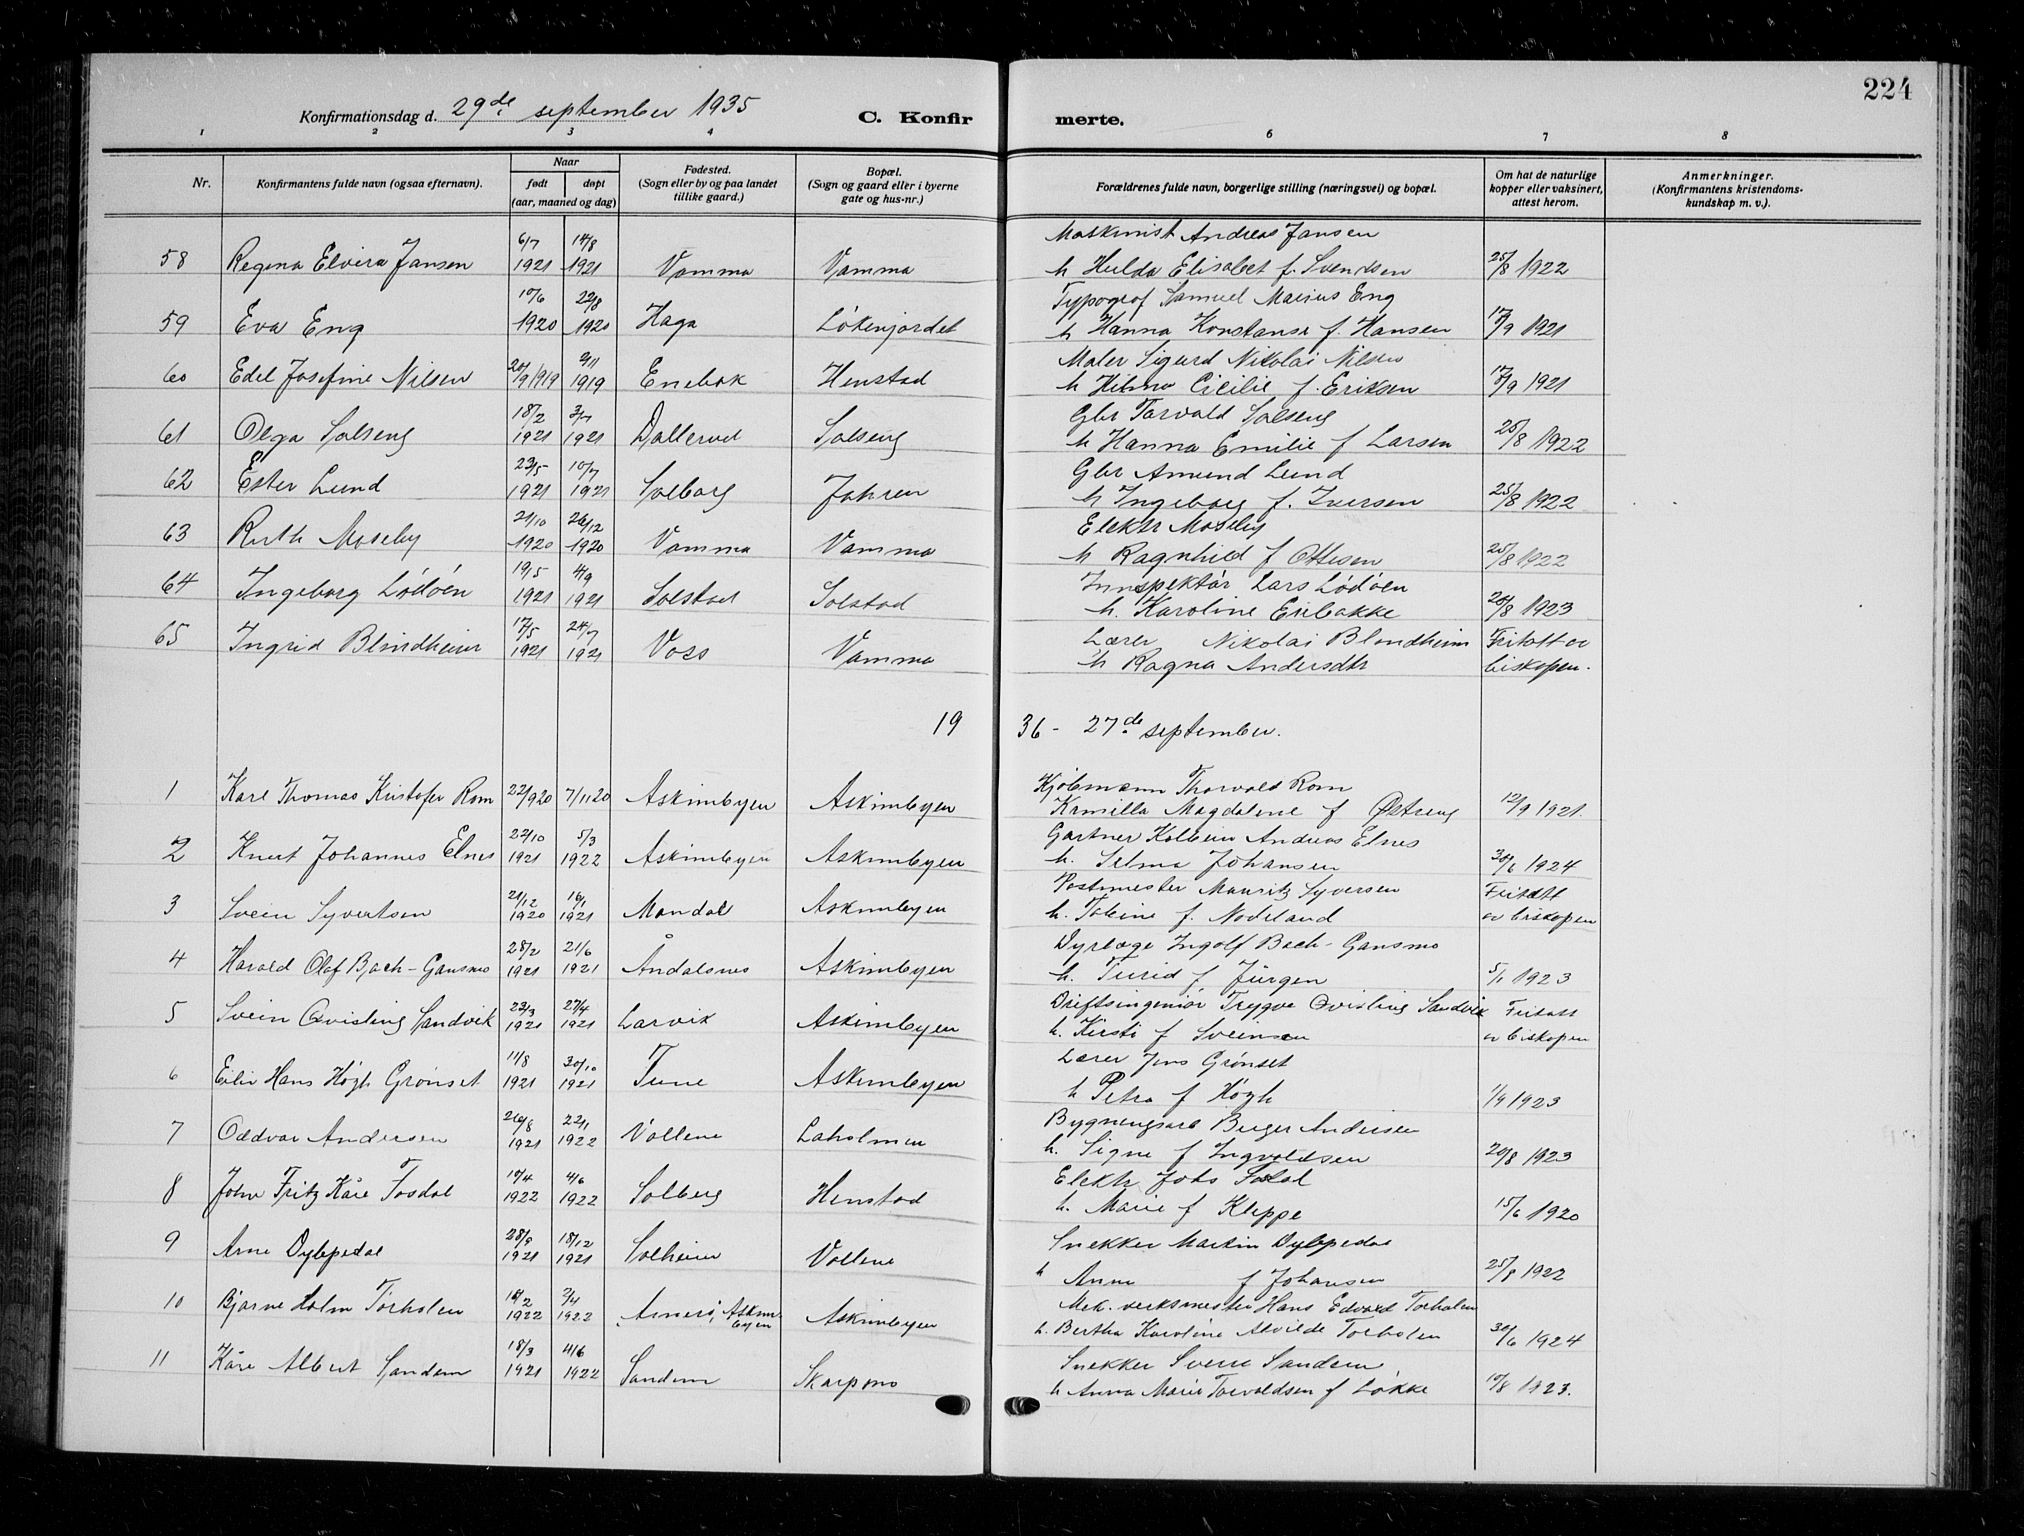 224
Konfirmationsdag d. 29de september 1935 C. Konfir merte.
1 2 3 4 6 7 8
Nr. Konfirmantens fulde navn (ogsaa efternavn). Naar født døpt (aar, maaned og dag) Fødested. (Sogn eller by og paa landet tillike gaard.) Bopæl. (Sogn og gaard eller i byerne gate og hus-nr.) Forældrenes fulde navn, borgerlige stilling (næringsvei) og bopæl. Om hat de naturlige kopper eller vaksinert, attest herom. Anmerkninger. (Konfirmantens kristendoms-kundskap m. v.).
58 Regina Elvira Jansen 6/7 1921 14/8 1921 Vamma Vamma Maskinist Andreas Jansen
h Hulda Elisabet f. Svendsen 25/8 1922
59 Eva Eng 10/6 1920 22/8 1920 Haga Løkenjordet Typograf Samuel Marius Eng
h Hanna Konstanse f. Hansen 17/9 1921
60 Edel Josefine Nilsen 20/9 1919 2/11 1919 Enebak Henstad Maler Sigurd Nikolai Nilsen
h Hilma Cicilie f. Eriksen 17/9 1921
61 Olga Solseng 18/2 1921 3/7 1921 Dallerud Solseng Gbr Torvald Solseng
h Hanna Emilie f Larsen 25/8 1922
62 Ester Lund 23/5 1921 10/7 1921 Solborg Johren Gbr Amund Lund
h Ingeborg f. Iversen 25/8 1922
63 Ruth Moseby 21/10 1920 26/12 1920 Vamma Vamma Elektr Moseby
h Ragnhild f Ottesen 25/8 1922
64 Ingeborg Lødøen 19/5 1921 4/9 1921 Solstad Solstad Innspektør Lars Lødøen
h. Karoline Enbakke 20/8 1923
65 Ingrid Blindheim 17/5 1921 24/7 1921 Voss Vamma Lærer Nikolai Blindheim Fritatt av
h Ragna Andersdtr biskopen.
19 36 - 27de september.
1 Karl Thomas Kristofer Rom 22/9 20 7/11 20 Askimbyen Askimbyen Kjøbmann Thorvald Rom
Kamilla Magdalene f Østreng 12/9 1921.
2 Knut Johannes Elnes 22/10 1921 5/3 1922 Askimbyen Askimbyen Gartner Kolbein Andreas Elnes
h. Selma Johansen 30/6 1924
3 Svein Syvertsen 21/12 1920 16/1 1921 Mandal Askimbyen Postmester Mauritz Syversen Fritatt
h. Tobine f. Nodeland av biskopen
4 Harald Olaf Bach-Gansmo 28/2 1921 21/6 1921 Åndalsnes Askimbyen Dyrlæge Ingolf Bach-Gansmo
h. Turid f Jürgen 5/1 1923
5 Svein Qvisling Sandvik 23/3 1921 27/4 1921 Larvik Askimbyen Driftsingeniør Trygve Qvisling Sandvik Fritatt
h. Kirsti f Sveinsen av biskopen
6 Eiliv Hans Høgh Grønset 11/8 1921 30/10 1921 Tune Askimbyen Lærer Jens Grønset
h Petra f Høgh 1/9 1923
7 Oddvar Andersen 26/8 1921 22/1 1922 Vollene Laholmen Bygningsarb Birger Andersen
h. Signe f Ingvoldsen 20/8 1923
8 John Fritz Kåre Fosdal 10/4 1922 4/6 1922 Solberg Henstad Elektr Johs Fosdal
h. Marie f Kleppe 15/6 1920
9 Arne Dybpedal 28/9 1921 18/12 1921 Solheim Vollene Snekker Martin Dybpedal
h Anna f Johansen 25/8 1922
10 Bjarne Holm Torholen 16/2 1922 2/4 1922 Askimbyen Askimbyen Mek. verksmester Hans Edvard Torholen
h. Bertha Karoline Alvilde Torholen 30/6 1924
11 Kåre Albert Sandem 18/3 1921 4/6 1922 Sandem Skarpmo Snekker Sverre Sandem
h Anna Marie Torvaldsen f Løkke 10/8 1923.